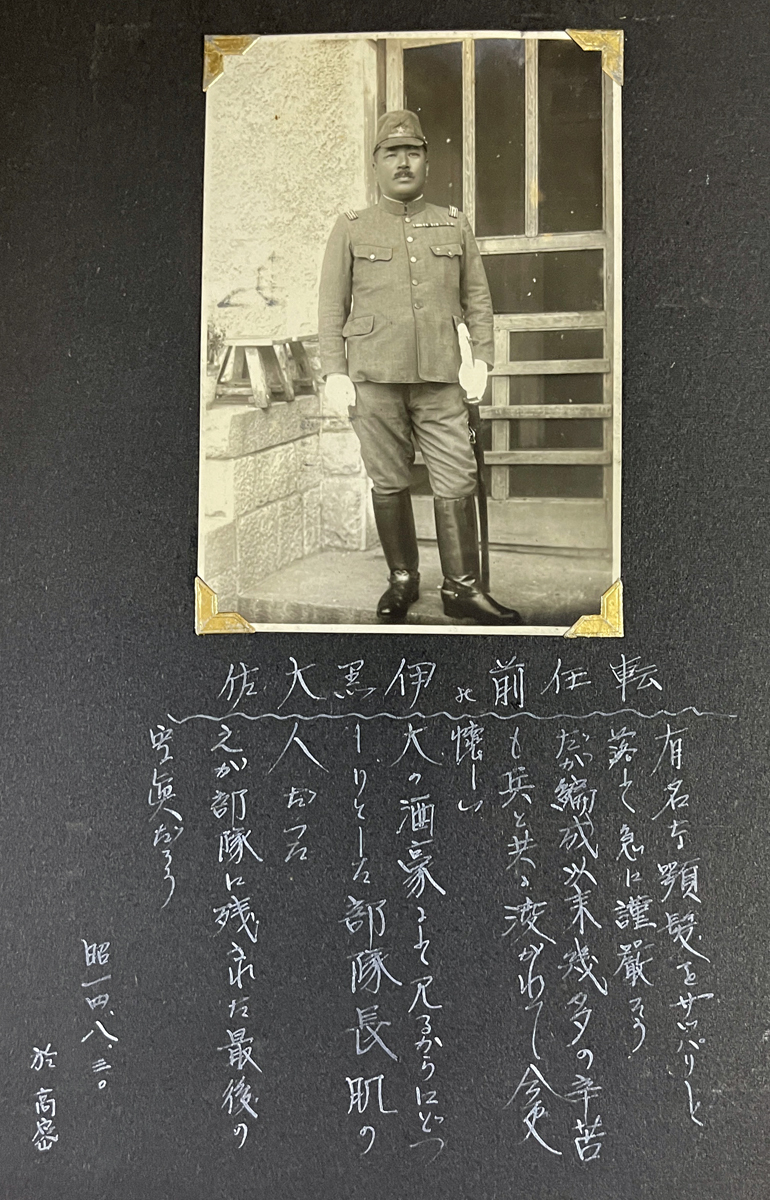 転任前の伊黒大佐
有名な顎髪をサッパリと
落して急に謹厳そう
だが編成以来幾多の辛苦
も兵と共に凌がれて今更
懐しい
大の酒豪 見るからにどつ
しりとした部隊長肌の
人だつた.
之が部隊に残された最後の
写真だろう
昭一四、八.三〇
於高密